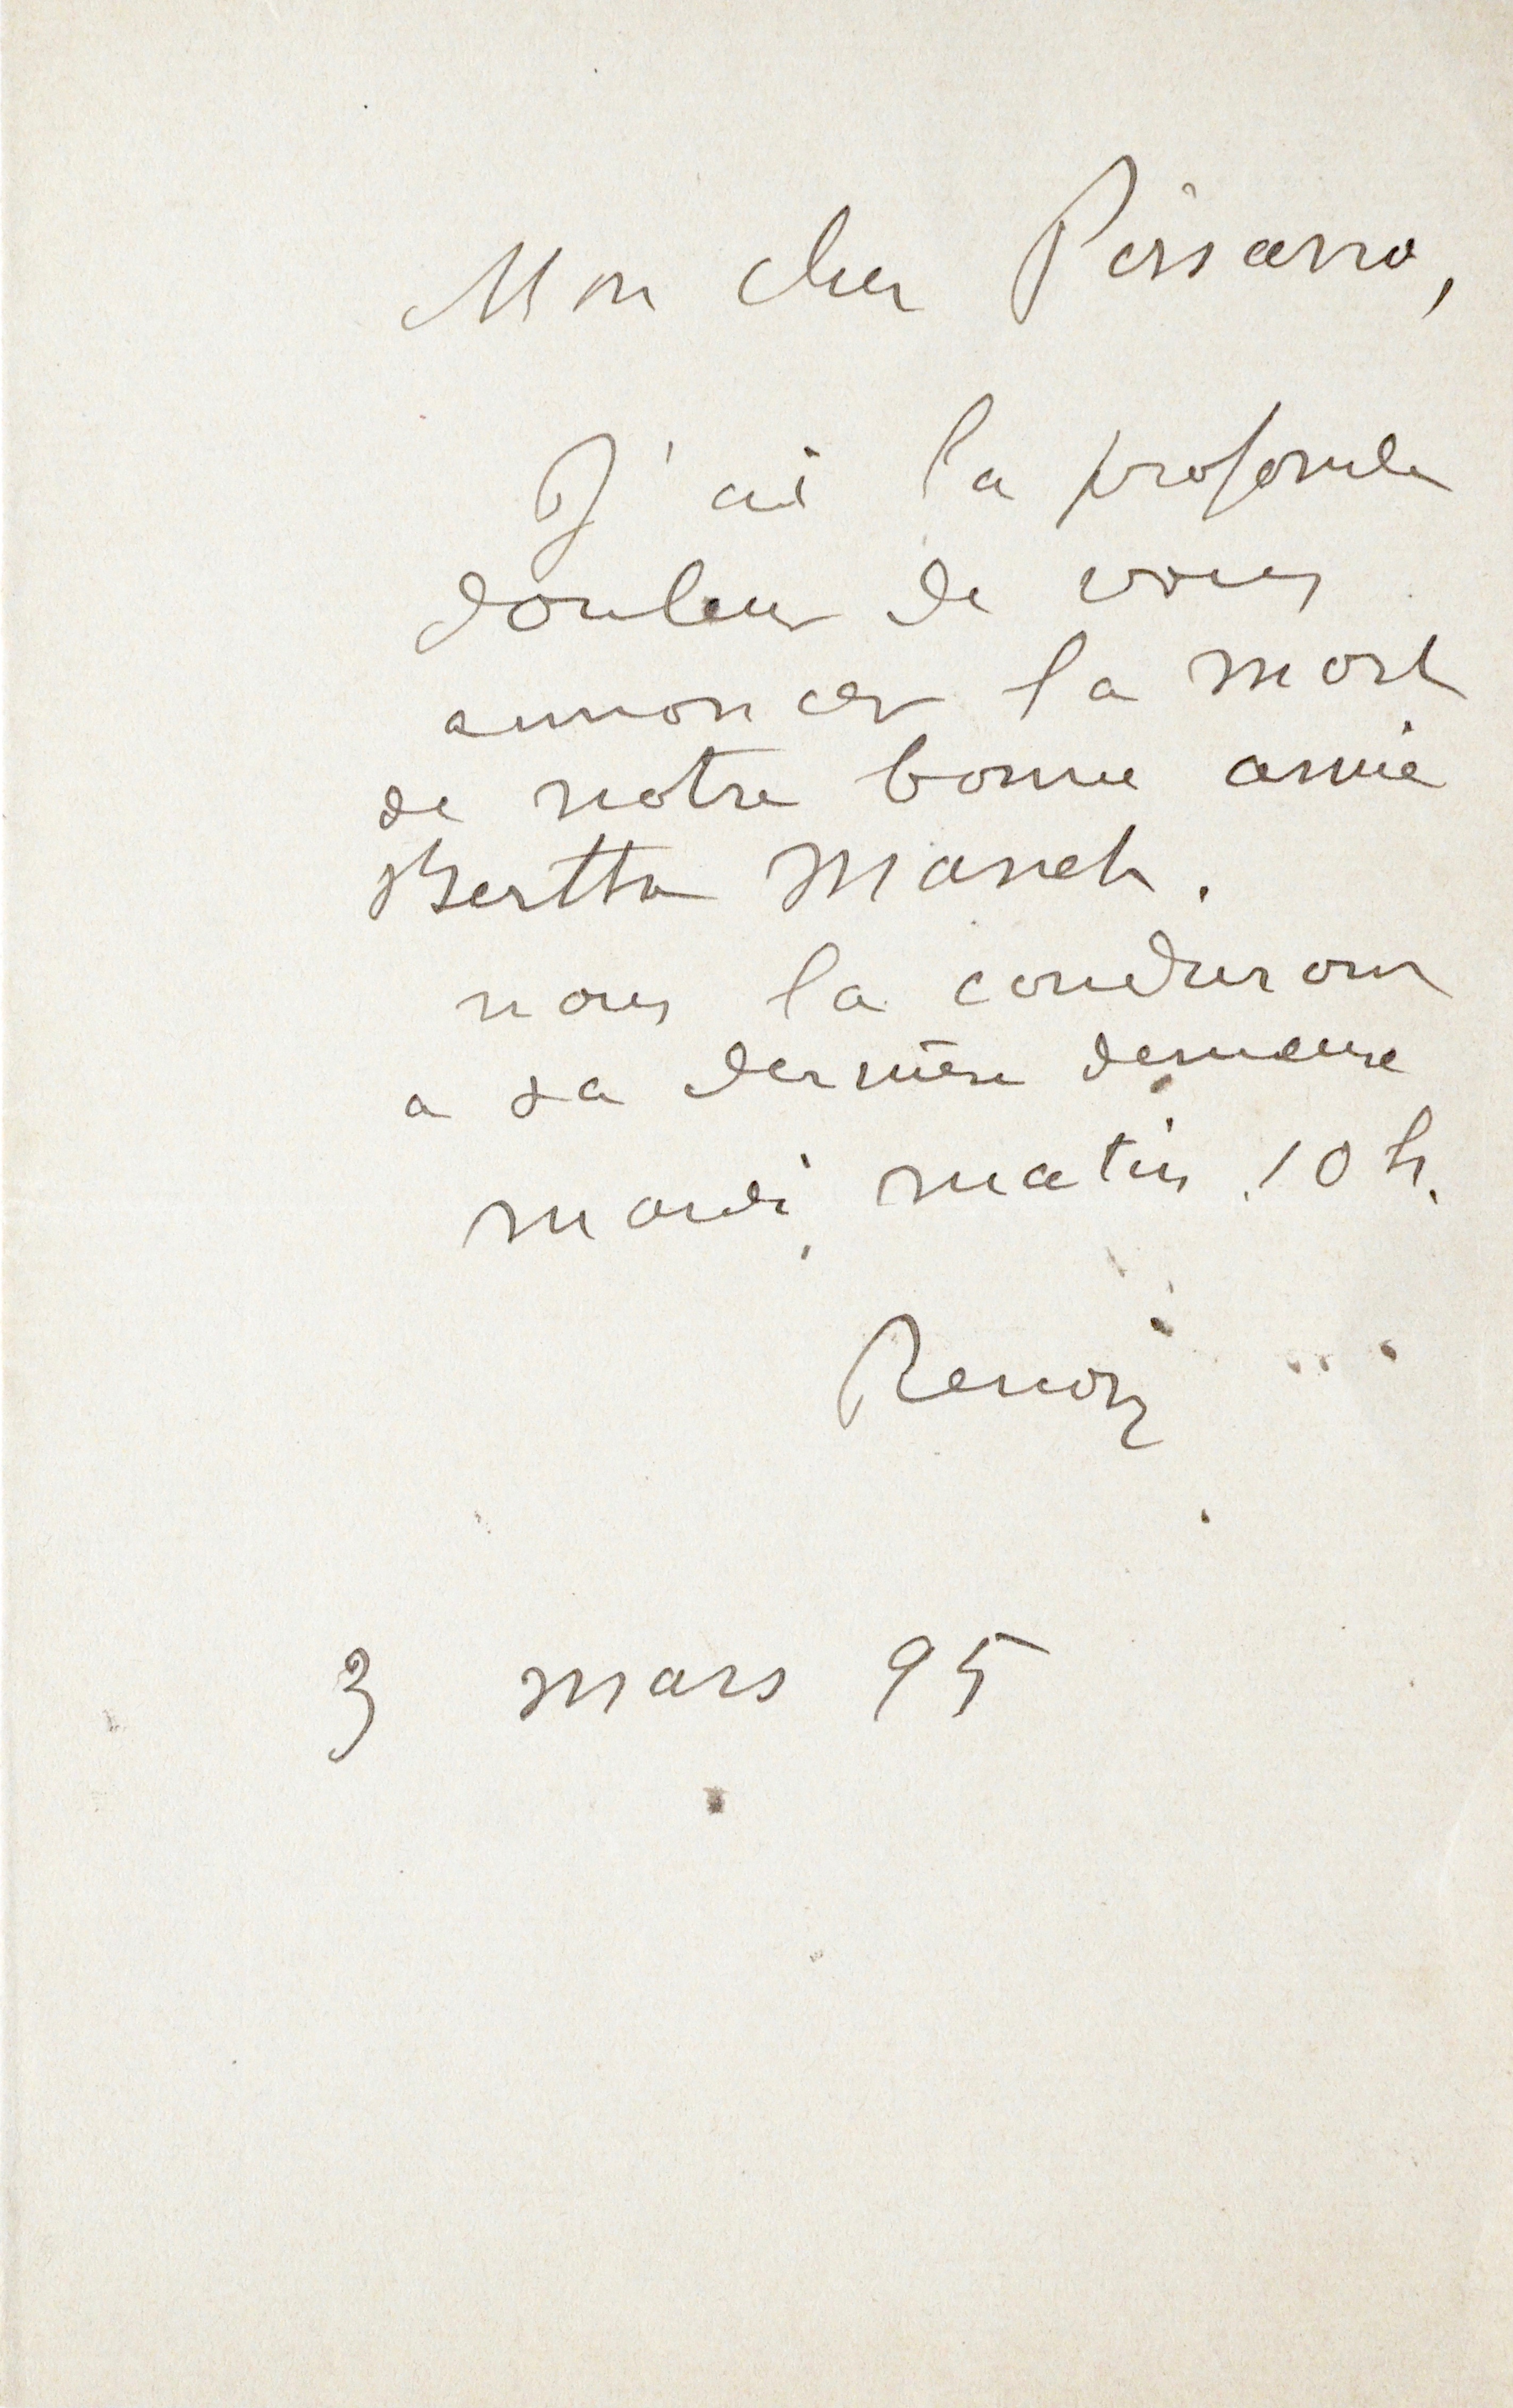 Mon cher Pissarro,
J'ai la profonde
douleur de vous
annoncer la mort
de notre bonne amie
Berthe Manet.
nous la conduirons
a sa dernière demeure
mardi matin 10 h.
Renoir
3 mars 95